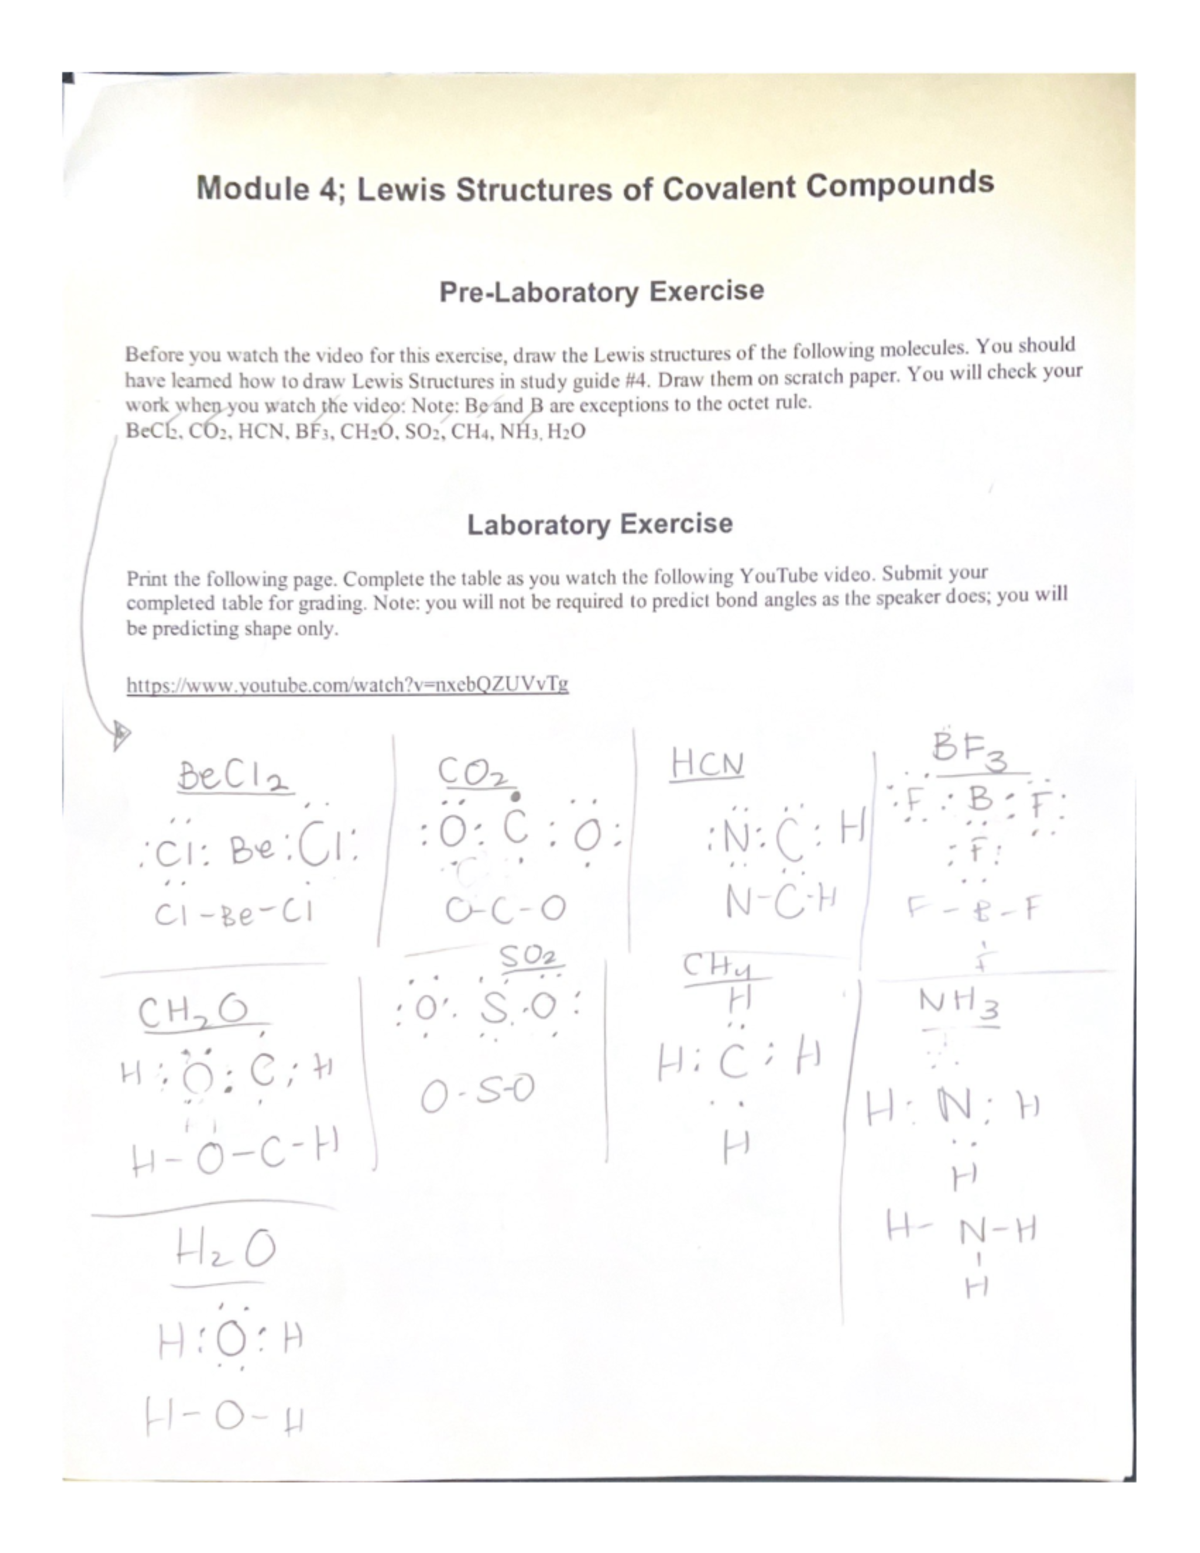 Module 4; Lewis Structures of Covalent Compounds
Pre-Laboratory Exercise
Before you watch the video for this exercise, draw the Lewis structures of the following molecules. You should
have learned how to draw Lewis Structures in study guide #4. Draw them on scratch paper. You will check your
work when you watch the video: Note: Be and B are exceptions to the octet rule.
BeCl₂, CO₂, HCN, BF₃, CH₂O, SO₂, CH₄, NH₃, H₂O
Laboratory Exercise
Print the following page. Complete the table as you watch the following YouTube video. Submit your
completed table for grading. Note: you will not be required to predict bond angles as the speaker does; you will
be predicting shape only.
https://www.youtube.com/watch?v=nxebQZUVvTg
BeCl₂
:Cl: Be :Cl:
Cl-Be-Cl
CO₂
:O: C :O:
O-C-O
HCN
:N: C : H
N-C-H
BF₃
:F : B : F:
:F:
F-B-F
F
CH₂O
H : O : C : H
H-O-C-H
SO₂
:O: S :O:
O-S-O
CH₄
H
H : C : H
H
NH₃
H : N : H
H
H- N-H
H
H₂O
H : O : H
H-O-H